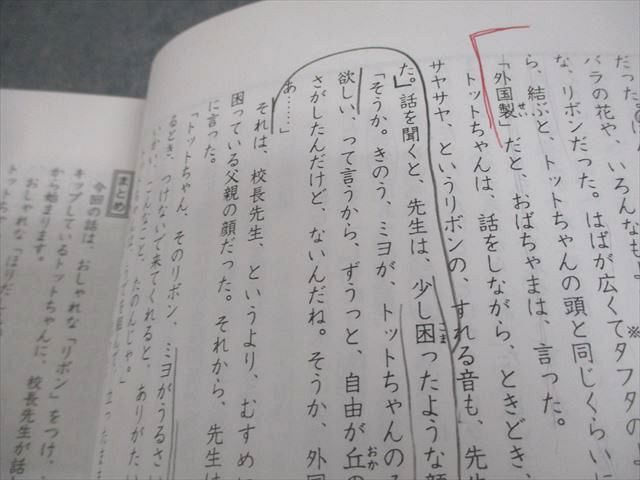 だった。
バラの花や、いろんなもよ
な、リボンだった。はばが広くてタフタの
ら、結ぶと、トットちゃんの頭と同じくらいに
「外国製」だと、おばちゃまは、言った。
トットちゃんは、話をしながら、ときどき、
サヤサヤ、というリボンの、すれる音も、先
た。」話を聞くと、先生は、少し困ったような顔
「そうか。きのう、ミヨが、トットちゃんの
欲しい、って言うから、ずうっと、自由が丘の
さがしたんだけど、ないんだね。そうか、外国
あ……」
それは、校長先生、というより、むすめに
困っている父親の顔だった。それから、先生は
に言った。
「トットちゃん、そのリボン、ミヨがうるさい
るとき、つけないで来てくれると、ありがたい
いかい、こんなこと、たのんじゃ。」
まとめ
今回の話は、おしゃれな「リボン」をつけ、
キップしているトットちゃんに、校長先生が話し
から始まります。
おしゃれな「ほりだし
トットちゃ